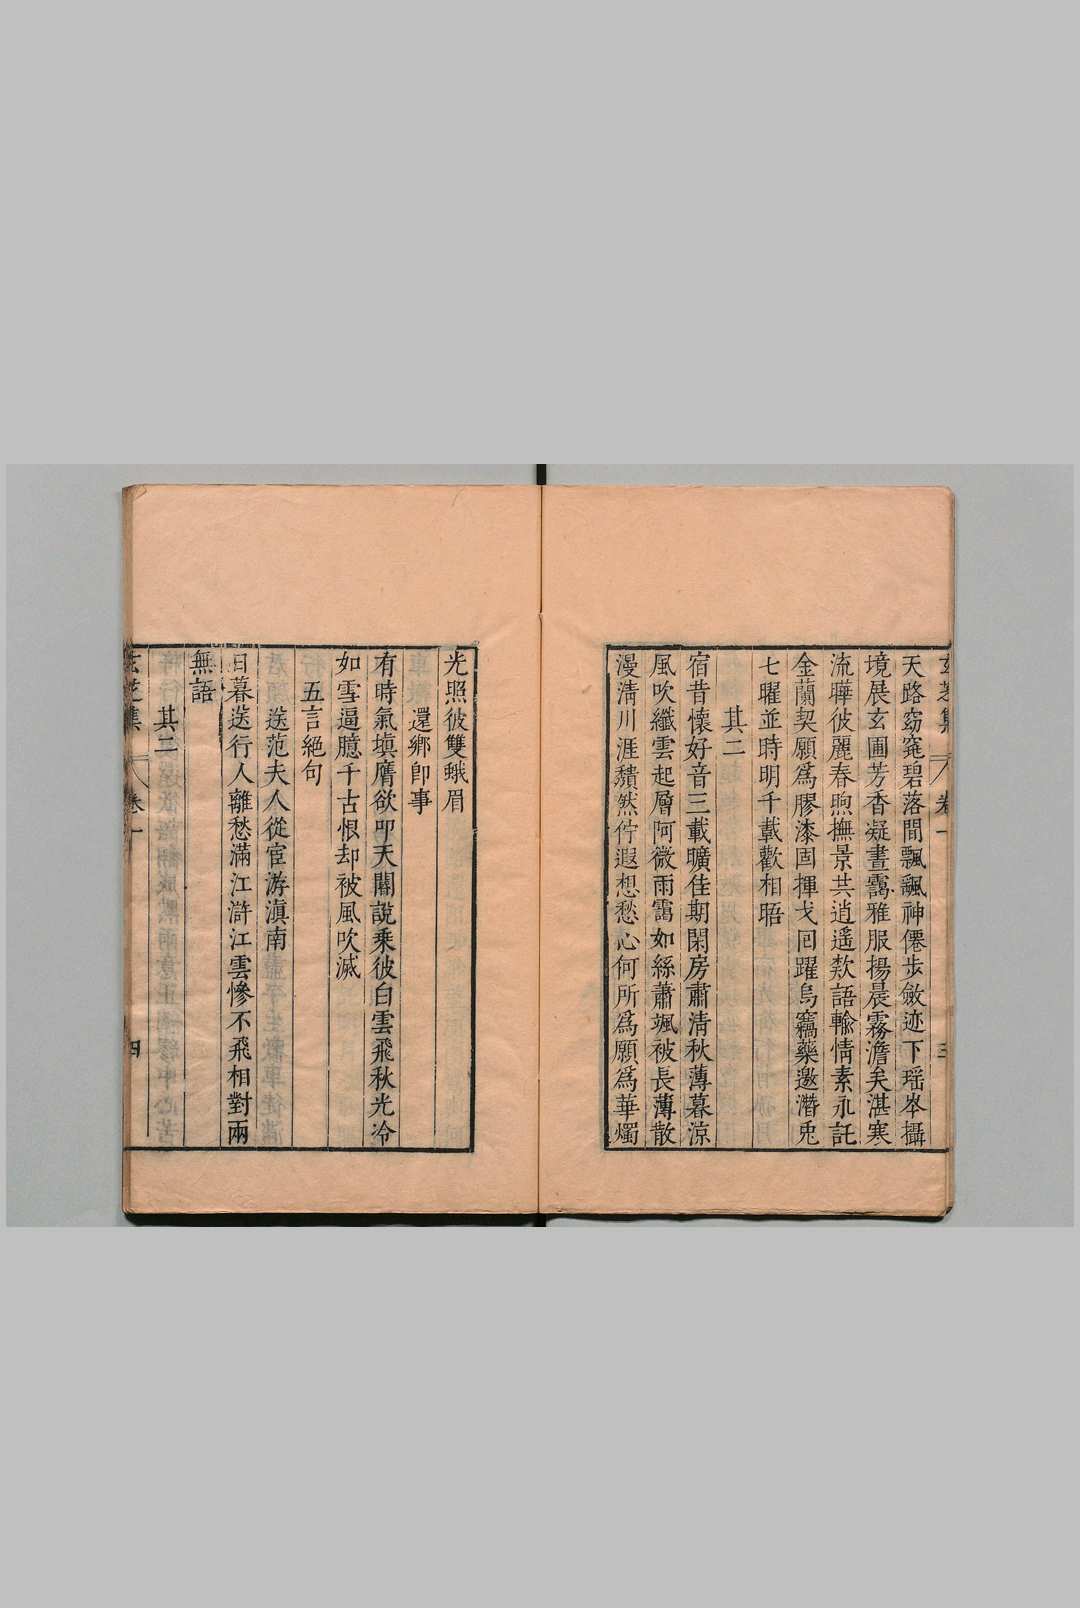 玄芝集
卷一
三
天路窈窕碧落間飄飄神僊步斂迹下瑶岑攝
境展玄圃芳香凝晝靄雅服揚晨霧澹矣湛寒
流曄彼麗春煦撫景共逍遥欵語輸情素永託
金蘭契願爲膠漆固揮戈囘躍烏竊藥邀潛兎
七曜並時明千載歡相晤
其二
宿昔懷好音三載曠佳期閑房肅清秋薄暮涼
風吹纖雲起層阿微雨靄如絲蕭颯被長薄散
漫清川涯穨然佇遐想愁心何所爲願爲華燭
光照彼雙蛾眉
還鄉卽事
有時氣塡膺欲叩天關說乘彼白雲飛秋光冷
如雪逼臆千古恨却被風吹滅
五言絕句
送范夫人從宦游滇南
日暮送行人離愁滿江滸江雲慘不飛相對兩
無語
其二
玄芝集
卷一
四